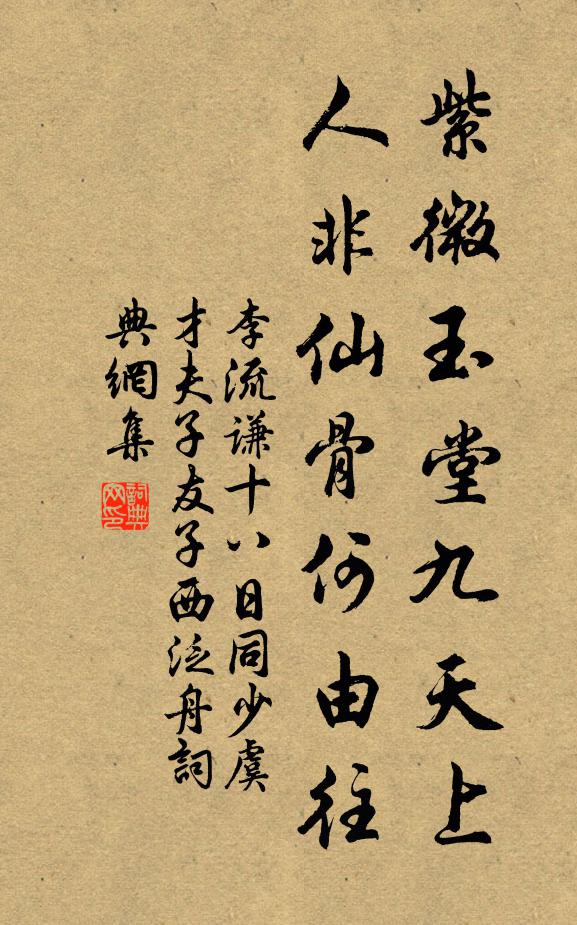 紫微玉堂九天上
人非仙骨何由往
李流谦十八日同少虞
才夫子友子西泛舟詞
典網集
詞典網印